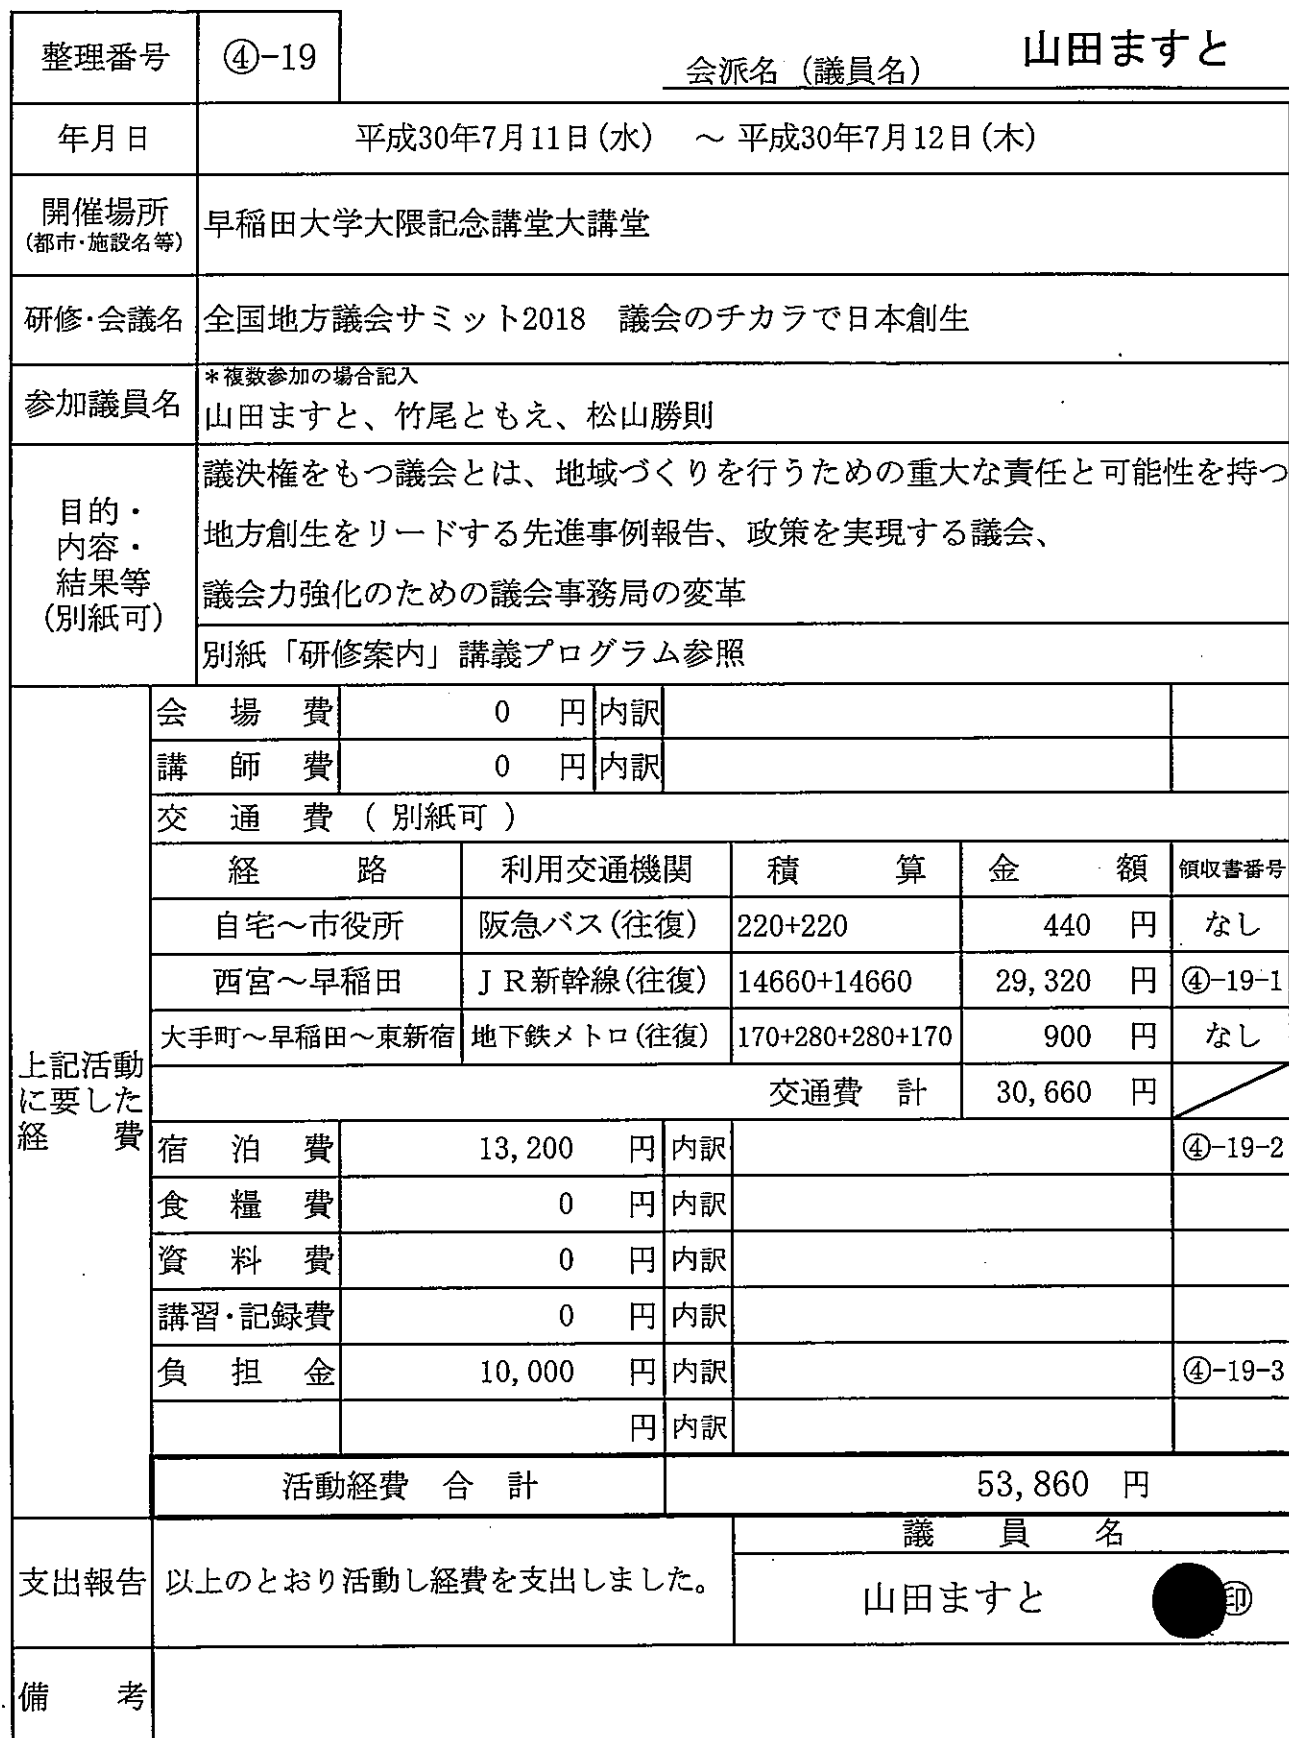 整理番号 ④-19
会派名（議員名） 山田ますと
年月日 平成30年7月11日(水) ～ 平成30年7月12日(木)
開催場所 早稲田大学大隈記念講堂大講堂
(都市･施設名等)
研修･会議名 全国地方議会サミット2018 議会のチカラで日本創生
参加議員名 ＊複数参加の場合記入
山田ますと、竹尾ともえ、松山勝則
目的・
内容・
結果等
(別紙可)
議決権をもつ議会とは、地域づくりを行うための重大な責任と可能性を持つ
地方創生をリードする先進事例報告、政策を実現する議会、
議会力強化のための議会事務局の変革
別紙「研修案内」講義プログラム参照
上記活動
に要した
経費
会場費 0 円 内訳
講師費 0 円 内訳
交通費 ( 別紙可 )
経路 利用交通機関 積算 金額 領収書番号
自宅～市役所 阪急バス(往復) 220+220 440 円 なし
西宮～早稲田 ＪＲ新幹線(往復) 14660+14660 29,320 円 ④-19-1
大手町～早稲田～東新宿 地下鉄メトロ(往復) 170+280+280+170 900 円 なし
交通費 計 30,660 円
宿泊費 13,200 円 内訳 ④-19-2
食糧費 0 円 内訳
資料費 0 円 内訳
講習･記録費 0 円 内訳
負担金 10,000 円 内訳 ④-19-3
円 内訳
活動経費 合 計 53,860 円
支出報告 以上のとおり活動し経費を支出しました。
議員名
山田ますと ㊞
備考